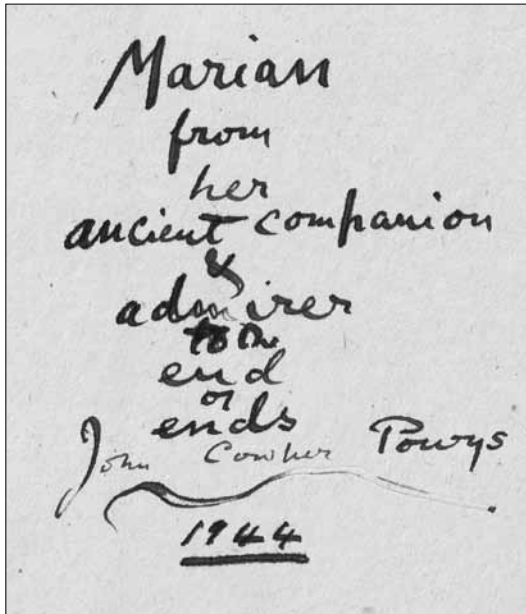 Marian
from
her
ancient companion
&
admirer
to the
end
of
ends
John Cowper Powys
1944